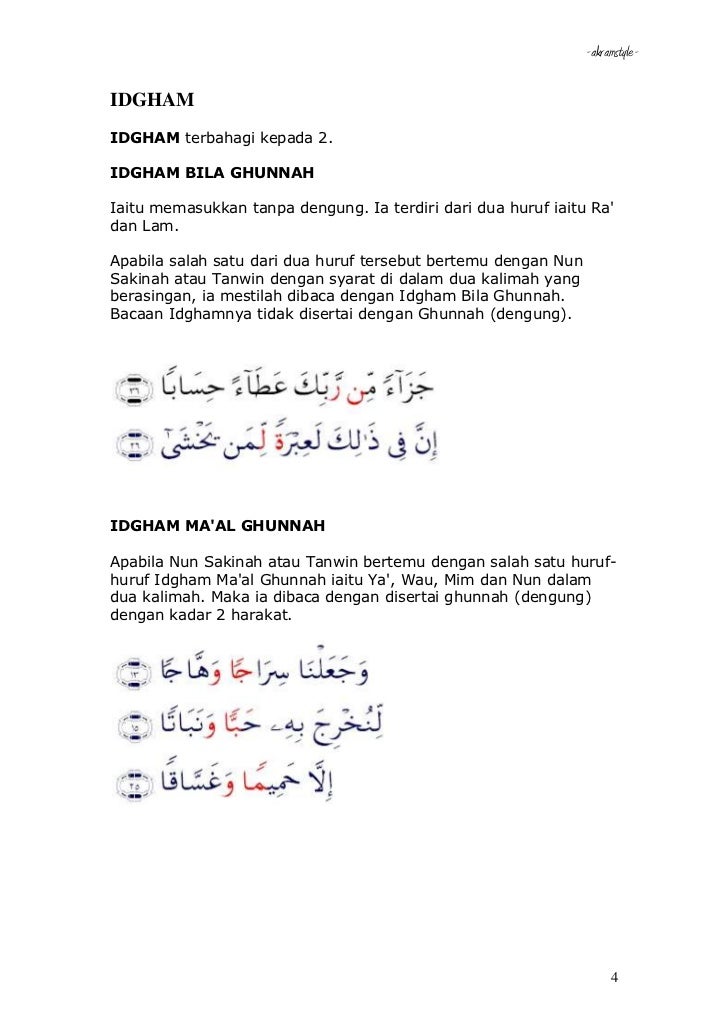 -akramstyle-
IDGHAM
IDGHAM terbahagi kepada 2.
IDGHAM BILA GHUNNAH
Iaitu memasukkan tanpa dengung. Ia terdiri dari dua huruf iaitu Ra'
dan Lam.
Apabila salah satu dari dua huruf tersebut bertemu dengan Nun
Sakinah atau Tanwin dengan syarat di dalam dua kalimah yang
berasingan, ia mestilah dibaca dengan Idgham Bila Ghunnah.
Bacaan Idghamnya tidak disertai dengan Ghunnah (dengung).
جَزَآءً مِّن رَّبِّكَ عَطَآءً حِسَابًا ٣٦
إِنَّ فِى ذَٰلِكَ لَعِبْرَةً لِّمَن يَخْشَىٰٓ ٢٦
IDGHAM MA'AL GHUNNAH
Apabila Nun Sakinah atau Tanwin bertemu dengan salah satu huruf-
huruf Idgham Ma'al Ghunnah iaitu Ya', Wau, Mim dan Nun dalam
dua kalimah. Maka ia dibaca dengan disertai ghunnah (dengung)
dengan kadar 2 harakat.
وَجَعَلْنَا سِرَاجًا وَهَّاجًا ١٣
لِّنُخْرِجَ بِهِۦ حَبًّا وَنَبَاتًا ١٥
إِلَّا حَمِيمًا وَغَسَّاقًا ٢٥
4